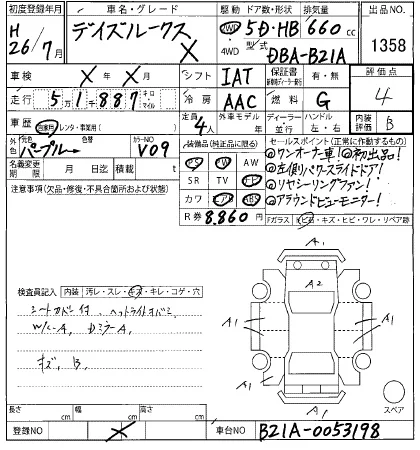 初度登録年月 車名・グレード 駆動 ドア数・形状 排気量 出品NO.
H 26/7月 デイズルークス X 2WD 4WD 5D・HB 660cc 1358
型式 DBA-B21A
車検 X年X月 シフト IAT 保証書 有・無 評価点
走行 51,887 キロ マイル 冷房 AAC 燃料 G 4
車歴 自家用・レンタ・事業用( ) 定員 4人 外車モデル 年 ディーラー 並行 ハンドル 左・右 内装評価 B
外色 元色 パープル→ カラーNO V09 装備品(純正品に限る) セールスポイント(正常に作動するもの)
名義変更期限 月 日 積載 t PS PW AW
SR TV ナビ
カワ エアB ABS
R券 8,860円
①ワンオーナー車!◎初出品!
●左側パワースライドドア!
●リヤシーリングファン!
●アラウンドビューモニター!
注意事項(欠品・修復・不具合箇所および状態) Fガラス 飛石・キズ・ヒビ・ワレ・リペア跡
A1
A2
A1 A1 A1 A1
A1
検査員記入 内装 汚レ・スレ・キズ・キレ・コゲ・穴
シートカバー付、ヘットライトオバミ
W/C-A、DミラーA、
キズ、B、
スペア
長さ cm 幅 cm 高さ cm
登録NO X 車台NO B21A-0053198